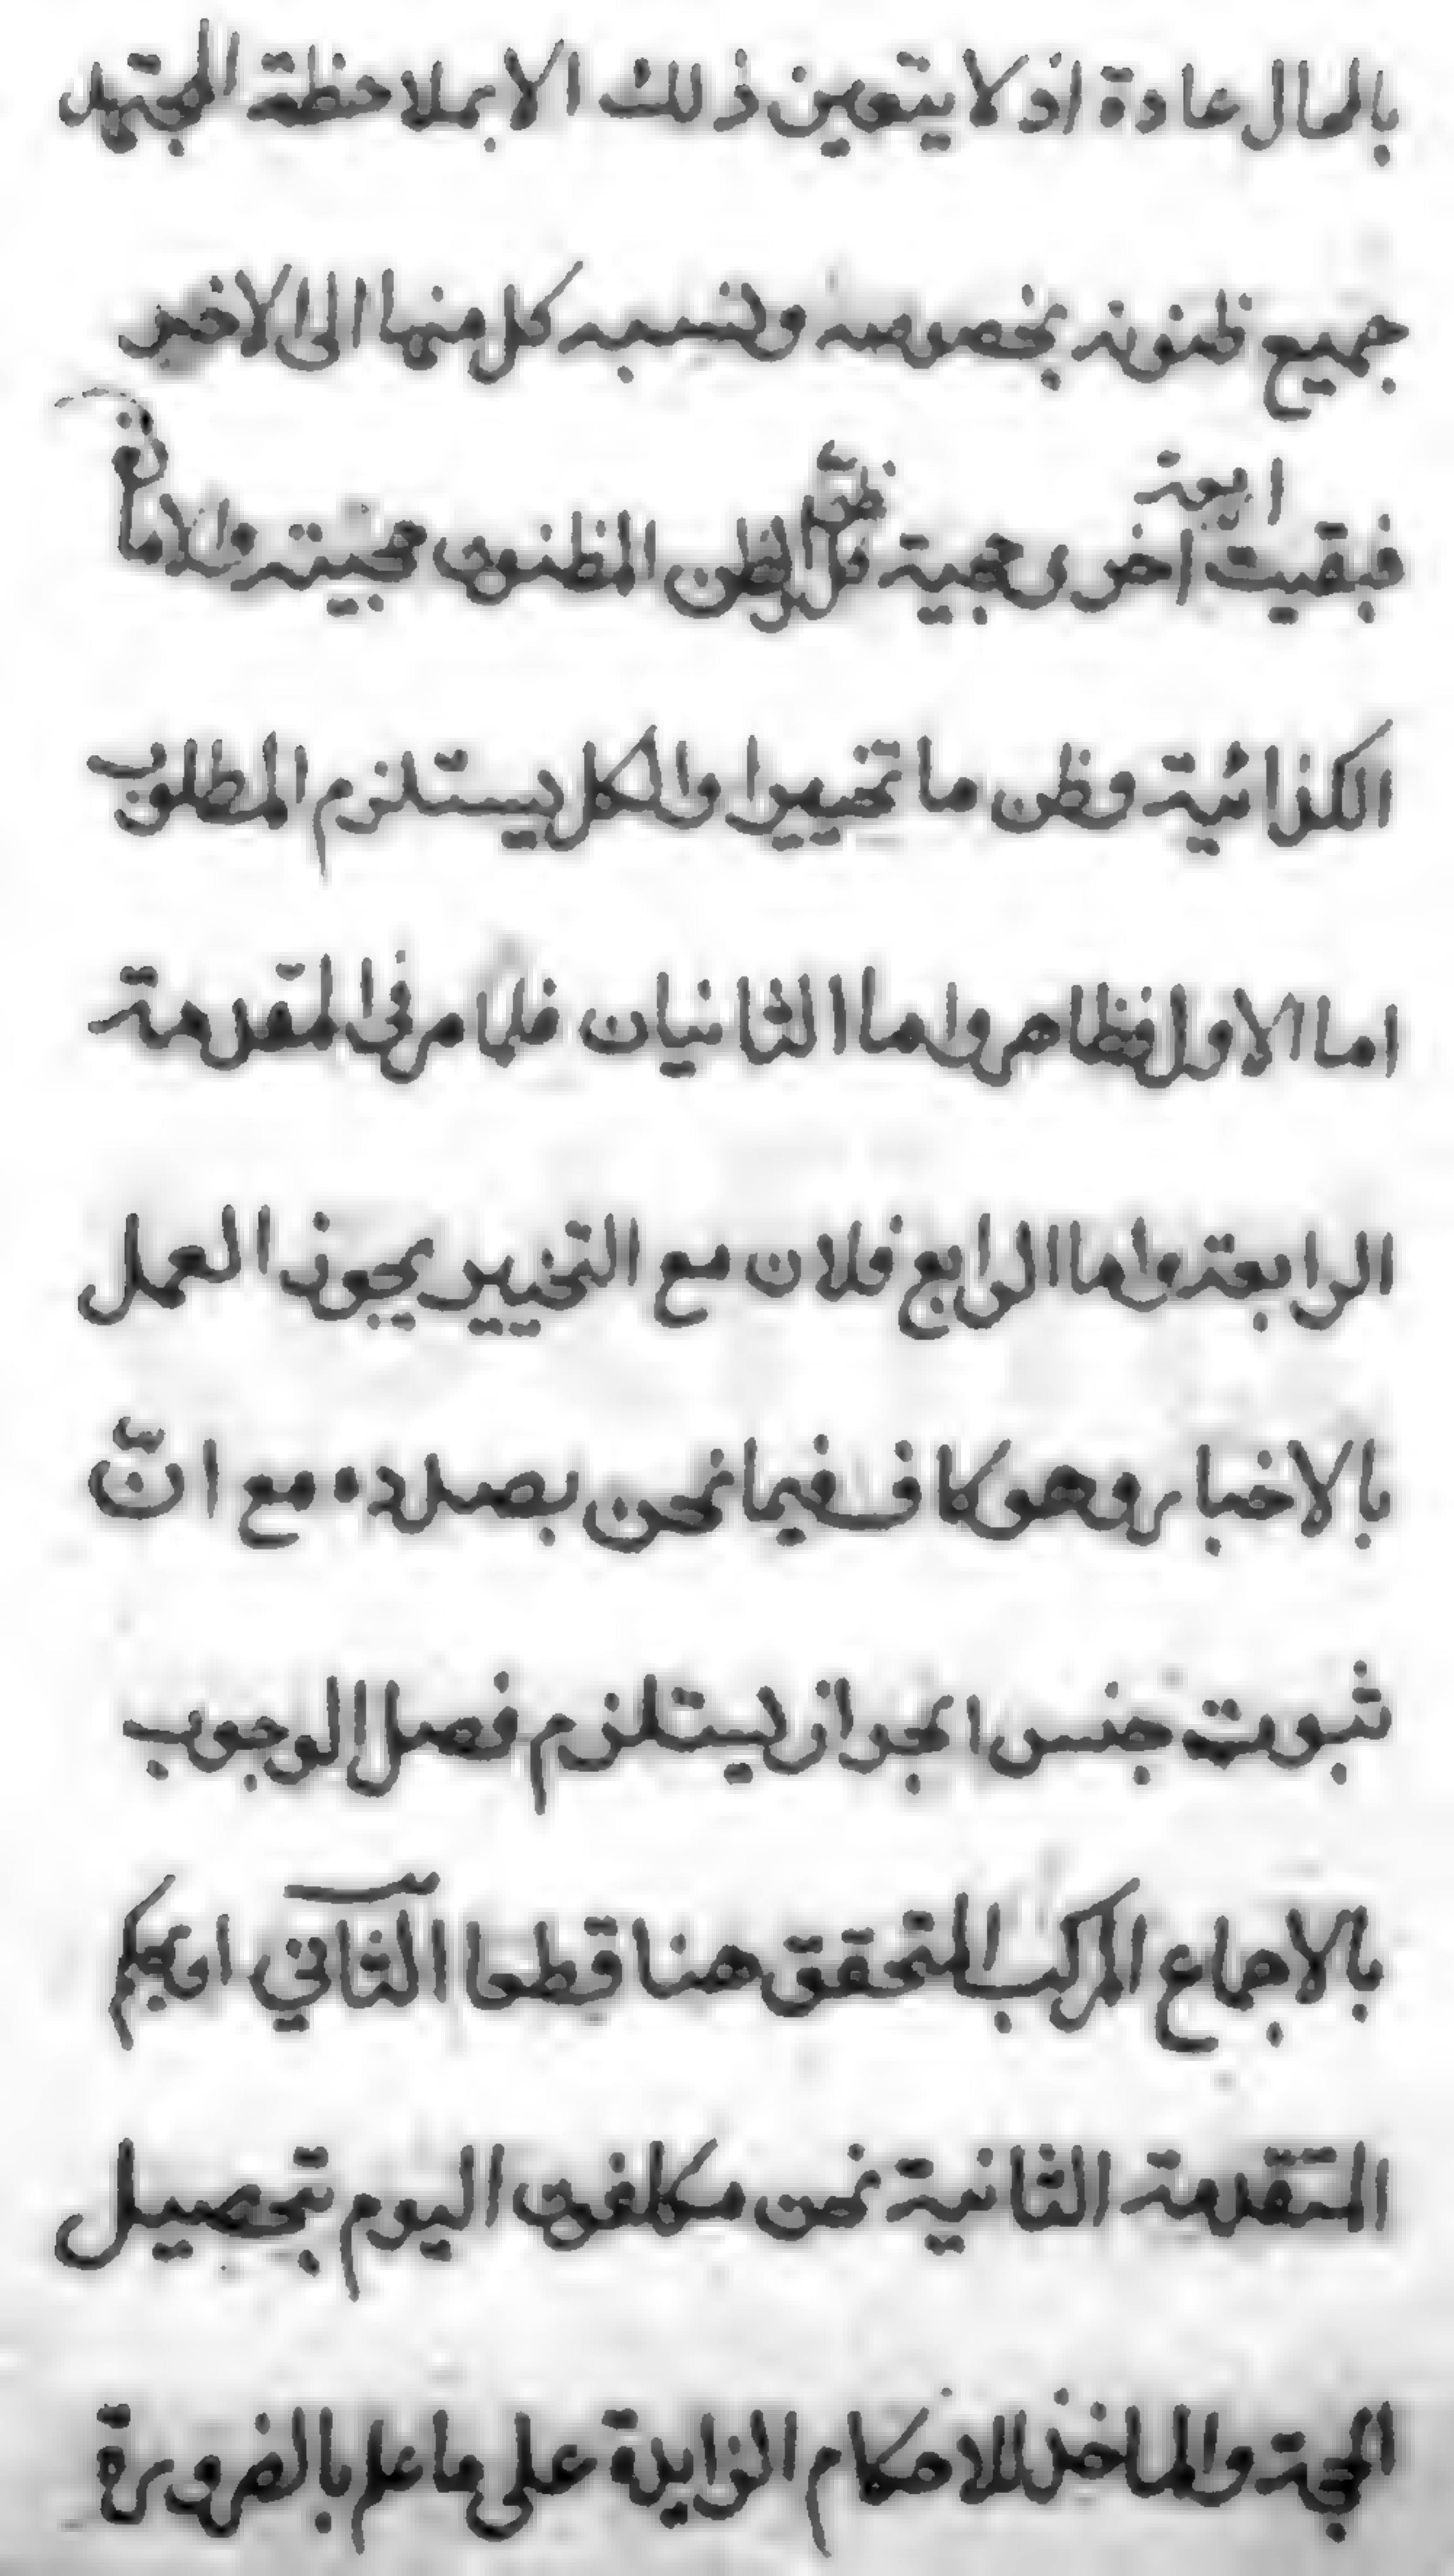 بالمال عادة اذ لا يتعين ذلك الا بملاحظة المجتهد
جميع ظنونه بخصوصه ونسبه كل منها الى الاخير
فبقيت اخرى حجية كل الظن المظنون حجيته والاما
الكذائية وظن ما تخييرا والكل يستلزم المطلوب
اما الاول فظاهر واما الثانيان فلما مر في المقدمة
الرابعة واما الرابع فلان مع التخيير يجوز العمل
بالاخبار وهو كاف فيما نحن بصدده مع انّ
ثبوت جنس الجواز يستلزم فصل الوجوب
بالاجماع المركب المتحقق هنا قطعا الثاني
المتقدمة الثانية نحن مكلفون اليوم بتحصيل
الحجة والماخذ للاحكام الزايدة على ما علم بالضرورة